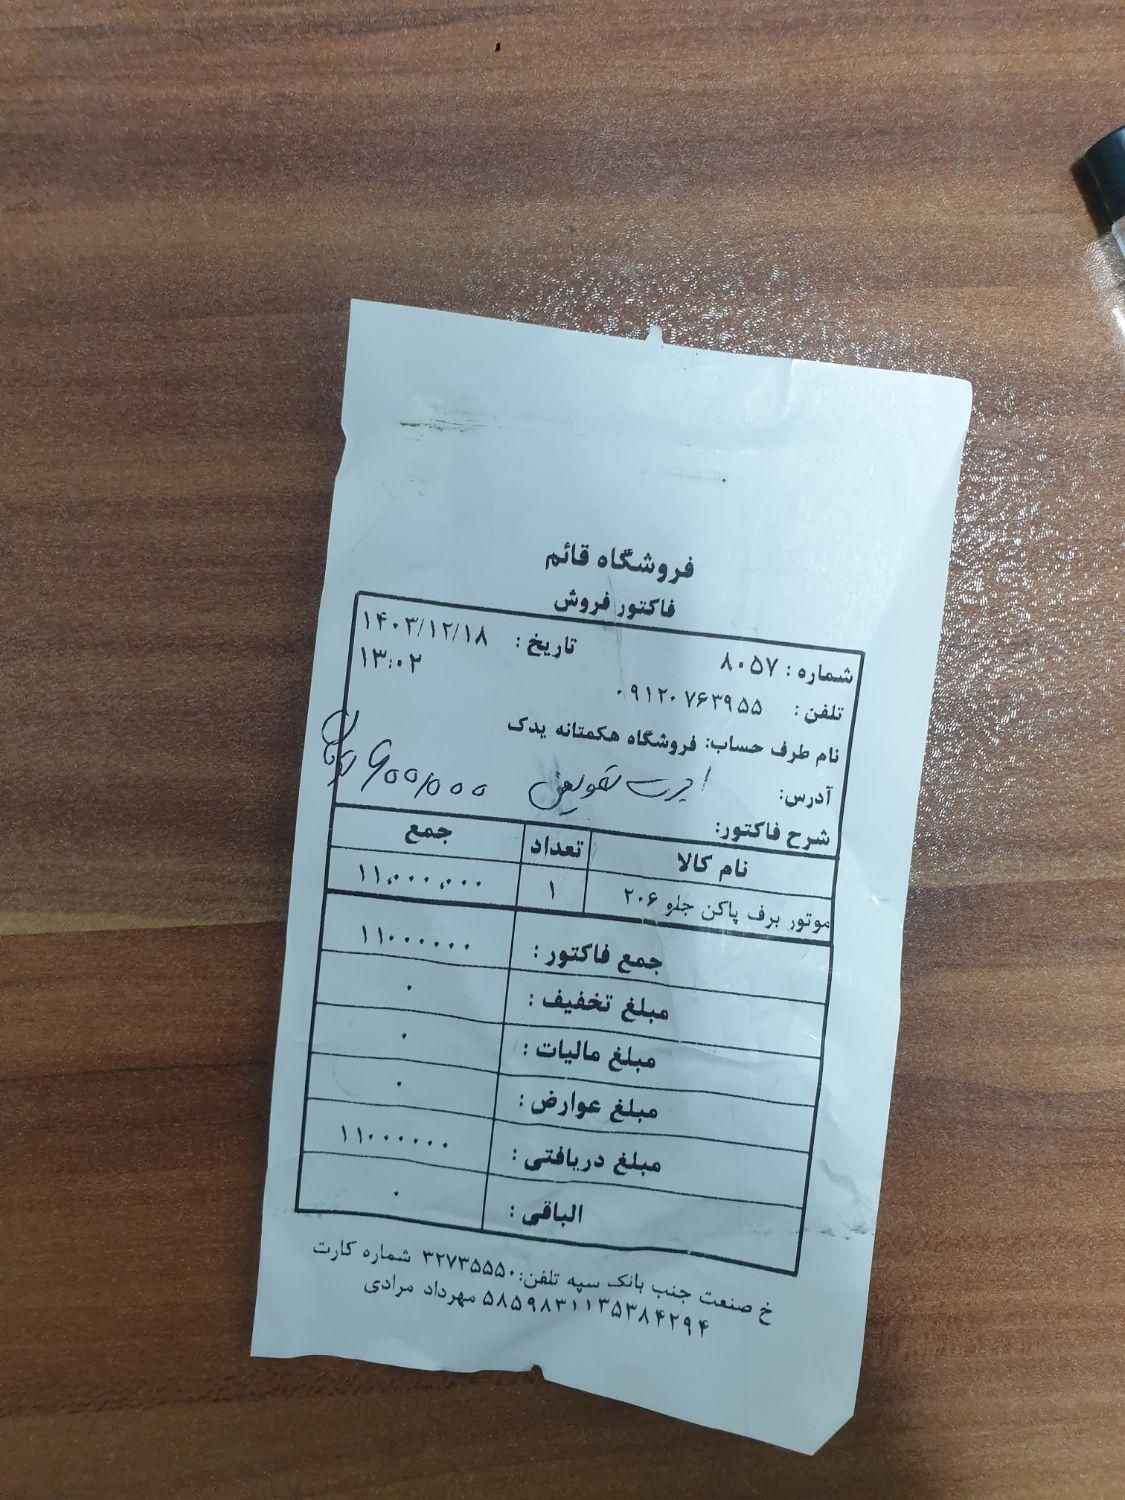 فروشگاه قائم
فاکتور فروش
شماره : ۸۰۵۷ تاریخ : ۱۴۰۳/۱۲/۱۸
۱۳:۰۲
تلفن : ۰۹۱۲۰۷۶۳۹۵۵
نام طرف حساب: فروشگاه هکمتانه یدک
آدرس: اجرت تعویض ۶۰۰/۰۰۰ تومان
شرح فاکتور:
نام کالا تعداد جمع
موتور برف پاکن جلو ۲۰۶ ۱ ۱۱,۰۰۰,۰۰۰
جمع فاکتور : ۱۱۰۰۰۰۰۰
مبلغ تخفیف : ۰
مبلغ مالیات : ۰
مبلغ عوارض : ۰
مبلغ دریافتی : ۱۱۰۰۰۰۰۰
الباقی : ۰
خ صنعت جنب بانک سپه تلفن:۳۲۷۳۵۵۵۰ شماره کارت
۵۸۵۹۸۳۱۱۳۵۳۸۴۲۹۴ مهرداد مرادی